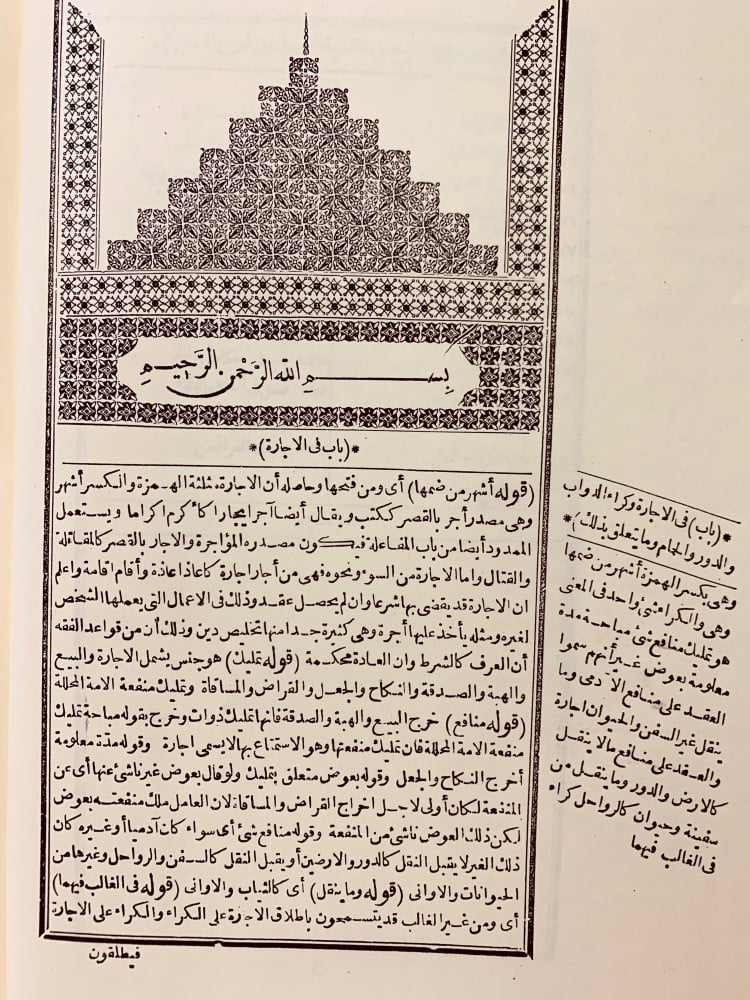 بسم الله الرحمن الرحيم
*(باب فى الاجارة)*
(قوله أشهر من ضمها) أى ومن فتحها وحاصله أن الاجارة مثلثة الهمزة والكسر أشهر
وهى مصدر أجر بالقصر ككتب ويقال أيضا آجر ايجارا كأكرم اكراما ويستعمل
الممدود أيضا من باب المفاعلة فيكون مصدره المؤاجرة والاجار بالقصر كالمقاتلة
والقتال واما الاجارة من السوء ونحوه فهى من أجار اجارة كأعاذ اعاذة وأقام اقامة واعلم
ان الاجارة قد يقضى بها شرعا وان لم يحصل عقد وذلك فى الاعمال التى يعملها الشخص
لغيره ومثله يأخذ عليها أجرة وهى كثيرة جدا منها تخليص دين وذلك أن من قواعد الفقه
أن العرف كالشرط وان العادة محكمة (قوله تمليك) هو جنس يشمل الاجارة والبيع
والهبة والصدقة والنكاح والجعل والقراض والمساقاة وتمليك منفعة الامة المحللة
(قوله منافع) خرج البيع والهبة والصدقة فانها تمليك ذوات وخرج بقوله مباحة تمليك
منفعة الامة المحللة فان تمليك منفعتها وهو الاستمتاع بها لا يسمى اجارة وقوله مدة معلومة
أخرج النكاح والجعل وقوله بعوض متعلق بتمليك ولو قال بعوض غير ناشئ عنها أى عن
المنفعة لكان أولى لاجل اخراج القراض والمساقاة لان العامل ملك منفعته بعوض
لكن ذلك العوض ناشئ من المنفعة وقوله منافع شئ أى سواء كان آدميا أو غيره كان
ذلك الغير لا يقبل النقل كالدور والارضين أو يقبل النقل كالسفن والرواحل وغيرها من
الحيوانات والاوانى (قوله وما ينقل) أى كالثياب والاوانى (قوله فى الغالب فيهما)
أى ومن غير الغالب قد يتسمحون باطلاق الاجارة على الكراء والكراء على الاجارة
فيطلقون
*(باب) فى الاجارة وكراء الدواب
والدور والحمام وما يتعلق بذلك)*
وهى بكسر الهمزة أشهر من ضمها
وهى والكراء شئ واحد فى المعنى
هو تمليك منافع شئ مباحة مدة
معلومة بعوض غير أنهم سموا
العقد على منافع الآدمى وما
ينقل غير السفن والحيوان اجارة
والعقد على منافع مالا ينقل
كالارض والدور وما ينقل من
سفينة وحيوان كالرواحل كراء
فى الغالب فيهما